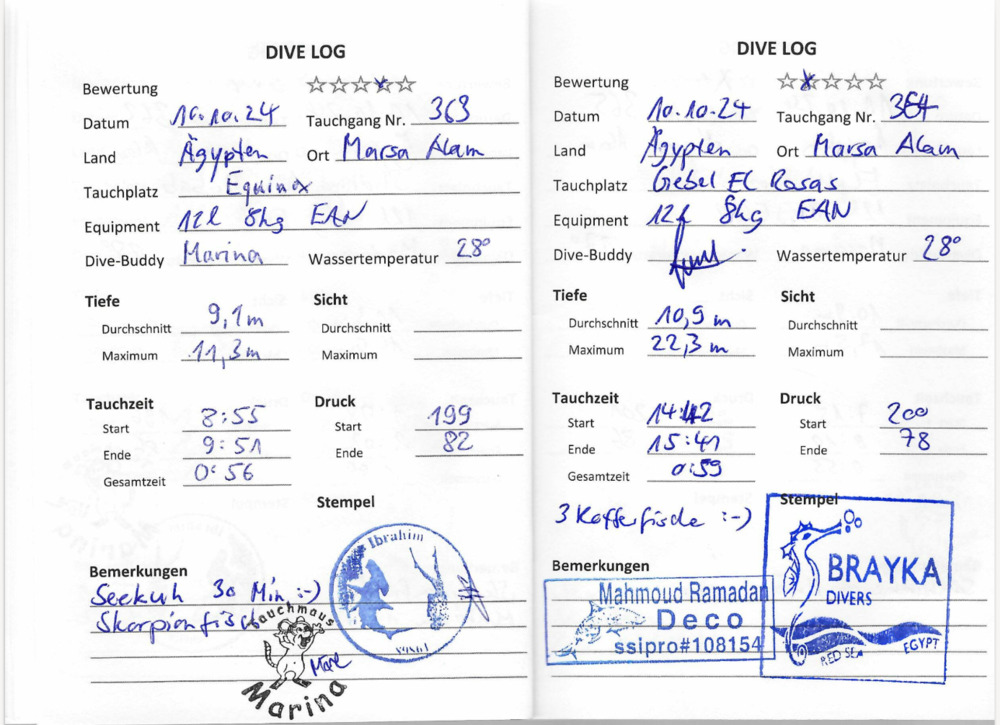 DIVE LOG
Bewertung
Datum 10.10.24 Tauchgang Nr. 363
Land Ägypten Ort Marsa Alam
Tauchplatz Equinox
Equipment 12l 8kg EAN
Dive-Buddy Marina Wassertemperatur 28°
Tiefe Sicht
Durchschnitt 9,1m Durchschnitt
Maximum 11,3m Maximum
Tauchzeit Druck
Start 8:55 Start 199
Ende 9:51 Ende 82
Gesamtzeit 0:56
Stempel
Ibrahim
Bemerkungen
Seekuh 30 Min :-)
Skorpionfisch
Tauchmaus
Marina
DIVE LOG
Bewertung
Datum 10.10.24 Tauchgang Nr. 364
Land Ägypten Ort Marsa Alam
Tauchplatz Gebel El Rosas
Equipment 12l 8kg EAN
Dive-Buddy Wassertemperatur 28°
Tiefe Sicht
Durchschnitt 10,9 m Durchschnitt
Maximum 22,3 m Maximum
Tauchzeit Druck
Start 14:42 Start 200
Ende 15:41 Ende 78
Gesamtzeit 0:59
Stempel
3 Kofferfische :-)
Bemerkungen
Mahmoud Ramadan
Deco
ssipro#108154
BRAYKA
DIVERS
RED SEA EGYPT